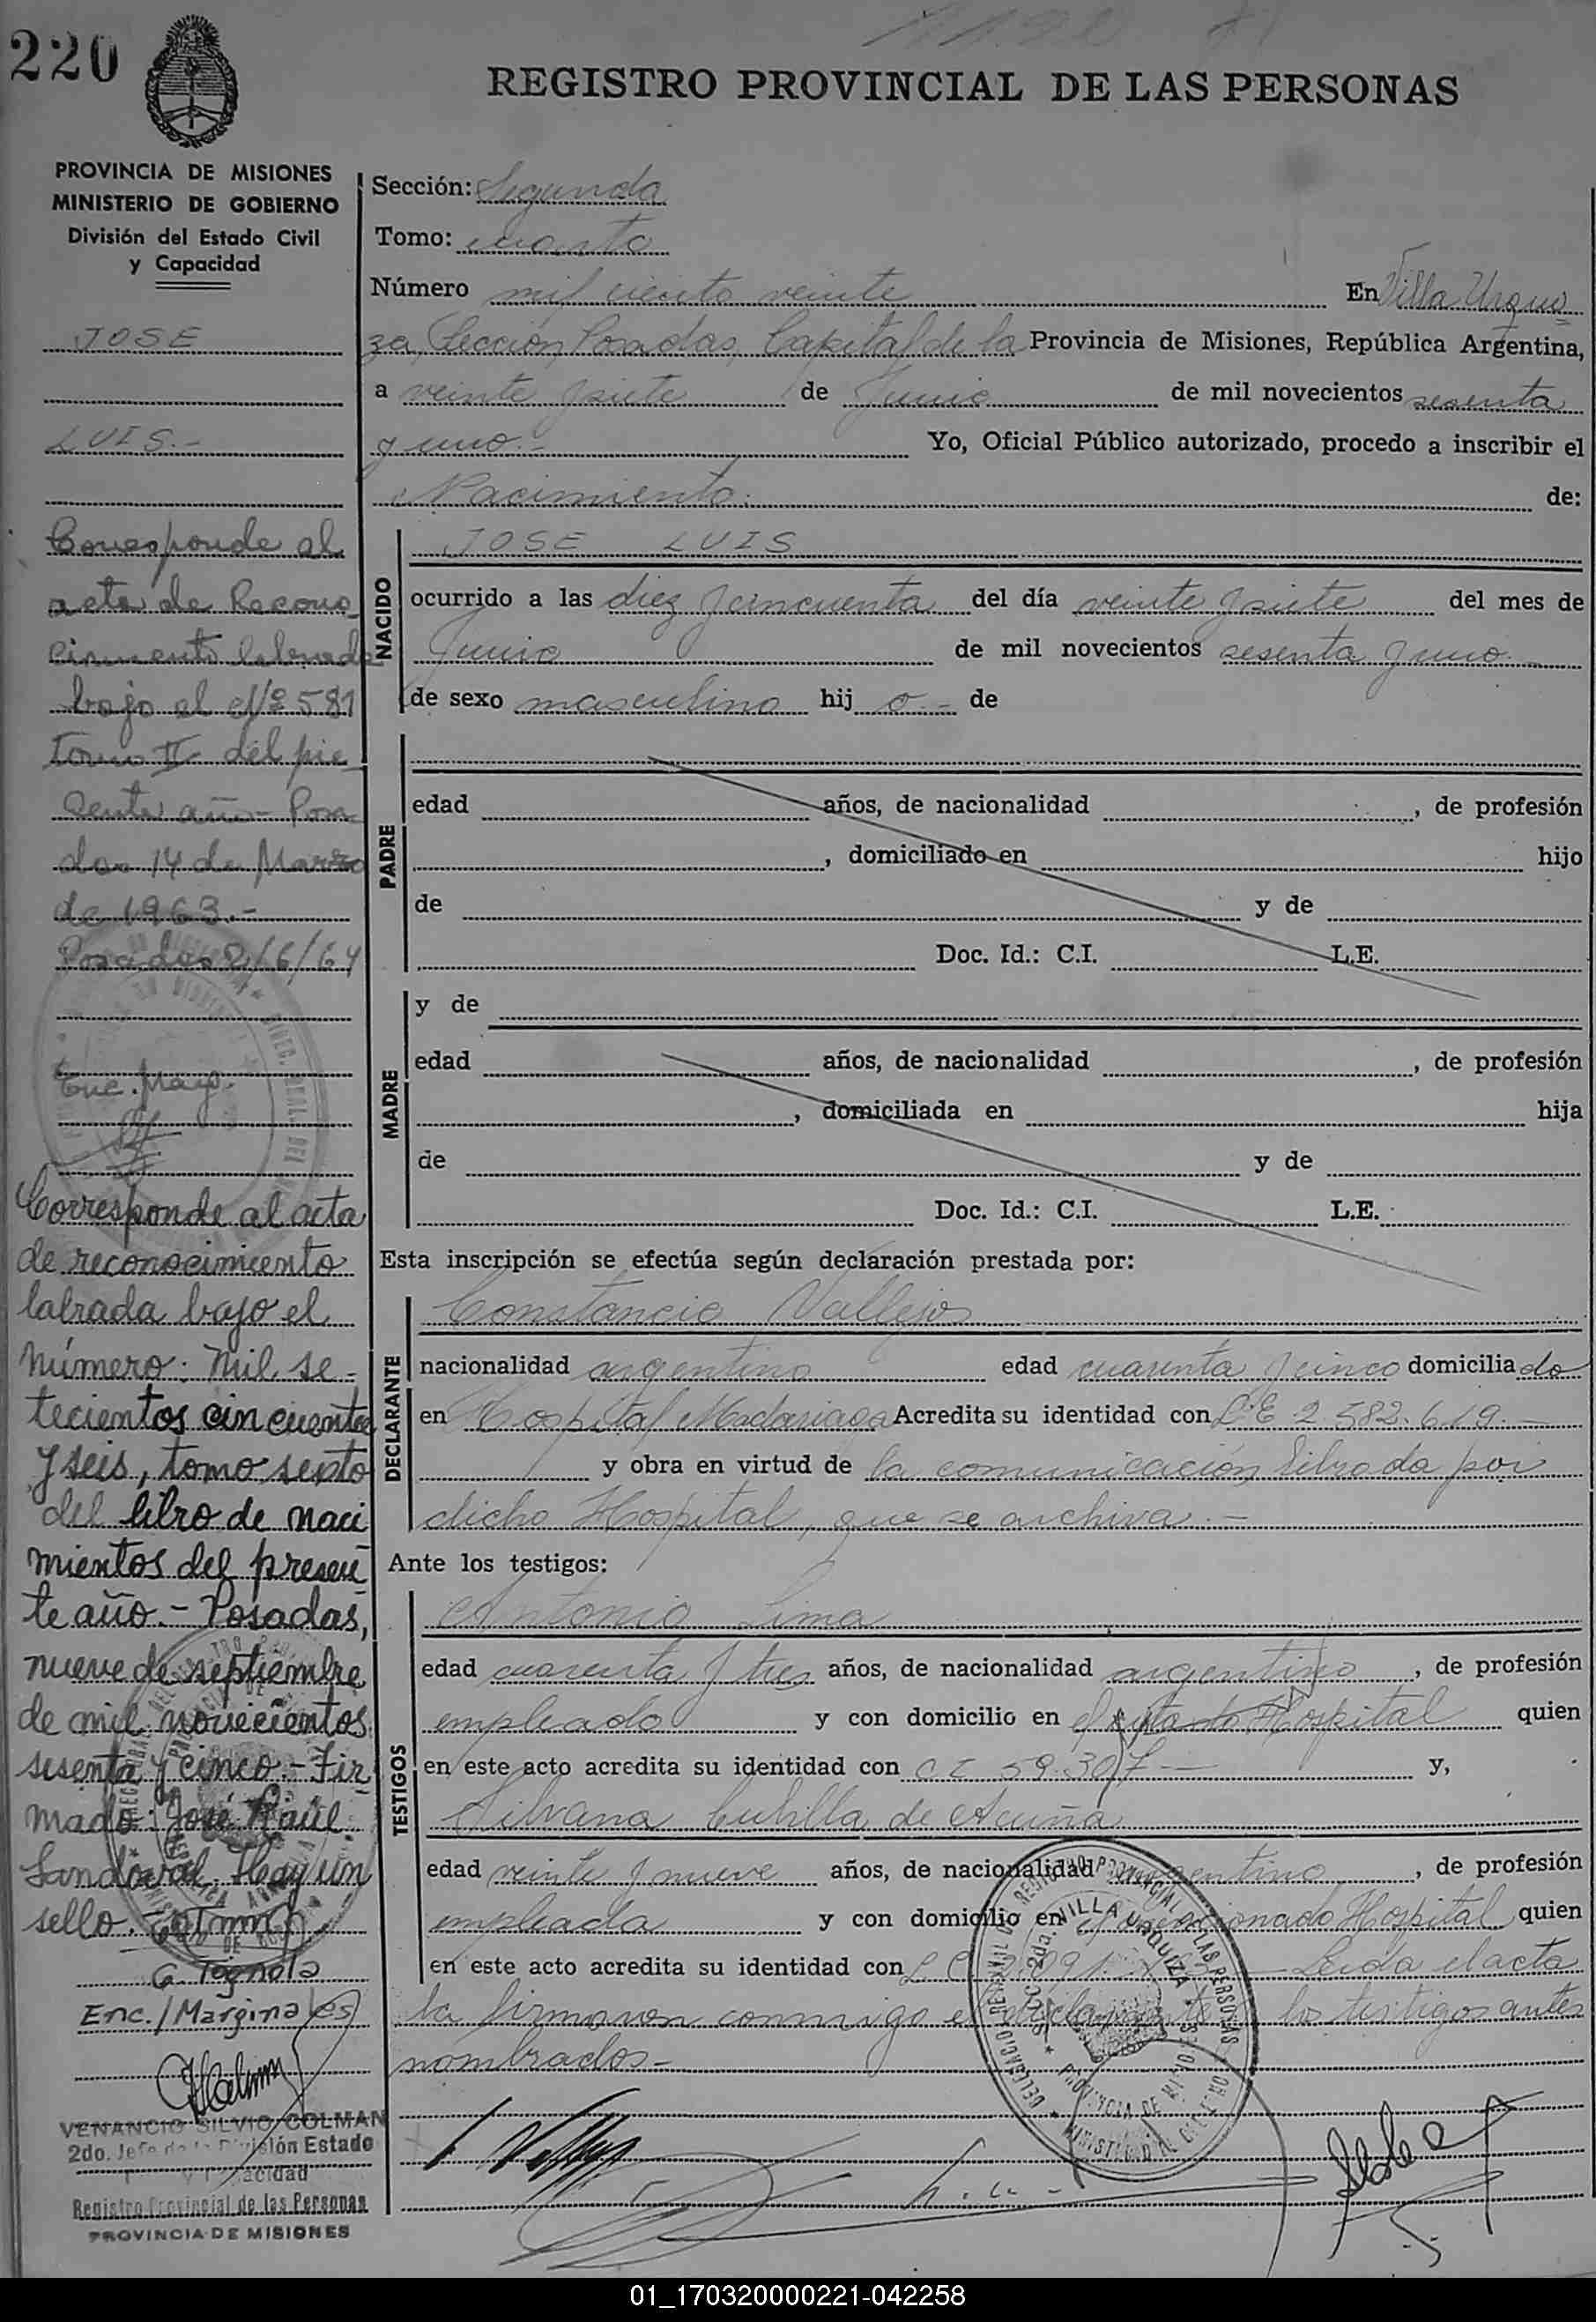 220
REGISTRO PROVINCIAL DE LAS PERSONAS
PROVINCIA DE MISIONES
MINISTERIO DE GOBIERNO
División del Estado Civil
y Capacidad
JOSE
LUIS.-
Corresponde al
acta de Recono
cimiento labrada
bajo el Nº 581
Tomo II del pre
sente año - Posa
das 14 de Marzo
de 1963.-
Posadas 2/6/64
Enc. Marg.
Corresponde al acta
de reconocimiento
labrada bajo el
número: mil se-
tecientos cincuenta
y seis, tomo sexto
del libro de naci
mientos del presen
te año.- Posadas,
nueve de septiembre
de mil novecientos
sesenta y cinco.- Fir
mado: José Raúl
Sandoval. Hay un
sello.-
G. Tognola
Enc./Marginales
VENANCIO SILVIO COLMAN
2do. Jefe de la División Estado
y Capacidad
Registro Provincial de las Personas
PROVINCIA DE MISIONES
Sección: Segunda
Tomo: cuarto
Número mil ciento veinte En Villa Urqui
za, Sección Posadas, Capital de la Provincia de Misiones, República Argentina,
a veinte y siete de Junio de mil novecientos sesenta
y uno.- Yo, Oficial Público autorizado, procedo a inscribir el
Nacimiento. de:
NACIDO
JOSE LUIS
ocurrido a las diez y cincuenta del día veinte y siete del mes de
Junio de mil novecientos sesenta y uno.
de sexo masculino hij o.- de
PADRE
edad años, de nacionalidad , de profesión
, domiciliado en hijo
de y de
Doc. Id.: C.I. L.E.
MADRE
y de
edad años, de nacionalidad , de profesión
, domiciliada en hija
de y de
Doc. Id.: C.I. L.E.
Esta inscripción se efectúa según declaración prestada por:
DECLARANTE
Constancio Vallejos
nacionalidad argentino edad cuarenta y cinco domicilia do
en Hospital Madariaga Acredita su identidad con L.E 2.582.619.-
y obra en virtud de la comunicación librada por
dicho Hospital, que se archiva.-
Ante los testigos:
TESTIGOS
Antonio Lima
edad cuarenta y tres años, de nacionalidad argentino , de profesión
empleado y con domicilio en el citado Hospital quien
en este acto acredita su identidad con C I 59.307- y,
Silvana Cubilla de Acuña
edad veinte y nueve años, de nacionalidad argentina , de profesión
empleada y con domicilio en el mencionado Hospital quien
en este acto acredita su identidad con L C Leida el acta
la firmaron conmigo el declarante y los testigos antes
nombrados-
DELEGACION REGISTRO PROVINCIAL DE LAS PERSONAS
SECC. 2da. VILLA URQUIZA
PROVINCIA DE MISIONES
01_170320000221-042258